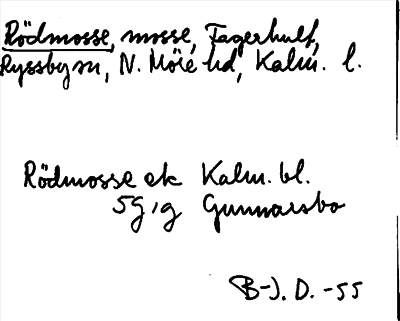 Rödmosse, mosse, Fagerhult,
Ryssby sn, N. Möre hd, Kalm. l.
Rödmosse ek Kalm. bl.
5g 1g Gunnarsbo
B-J. D. -55